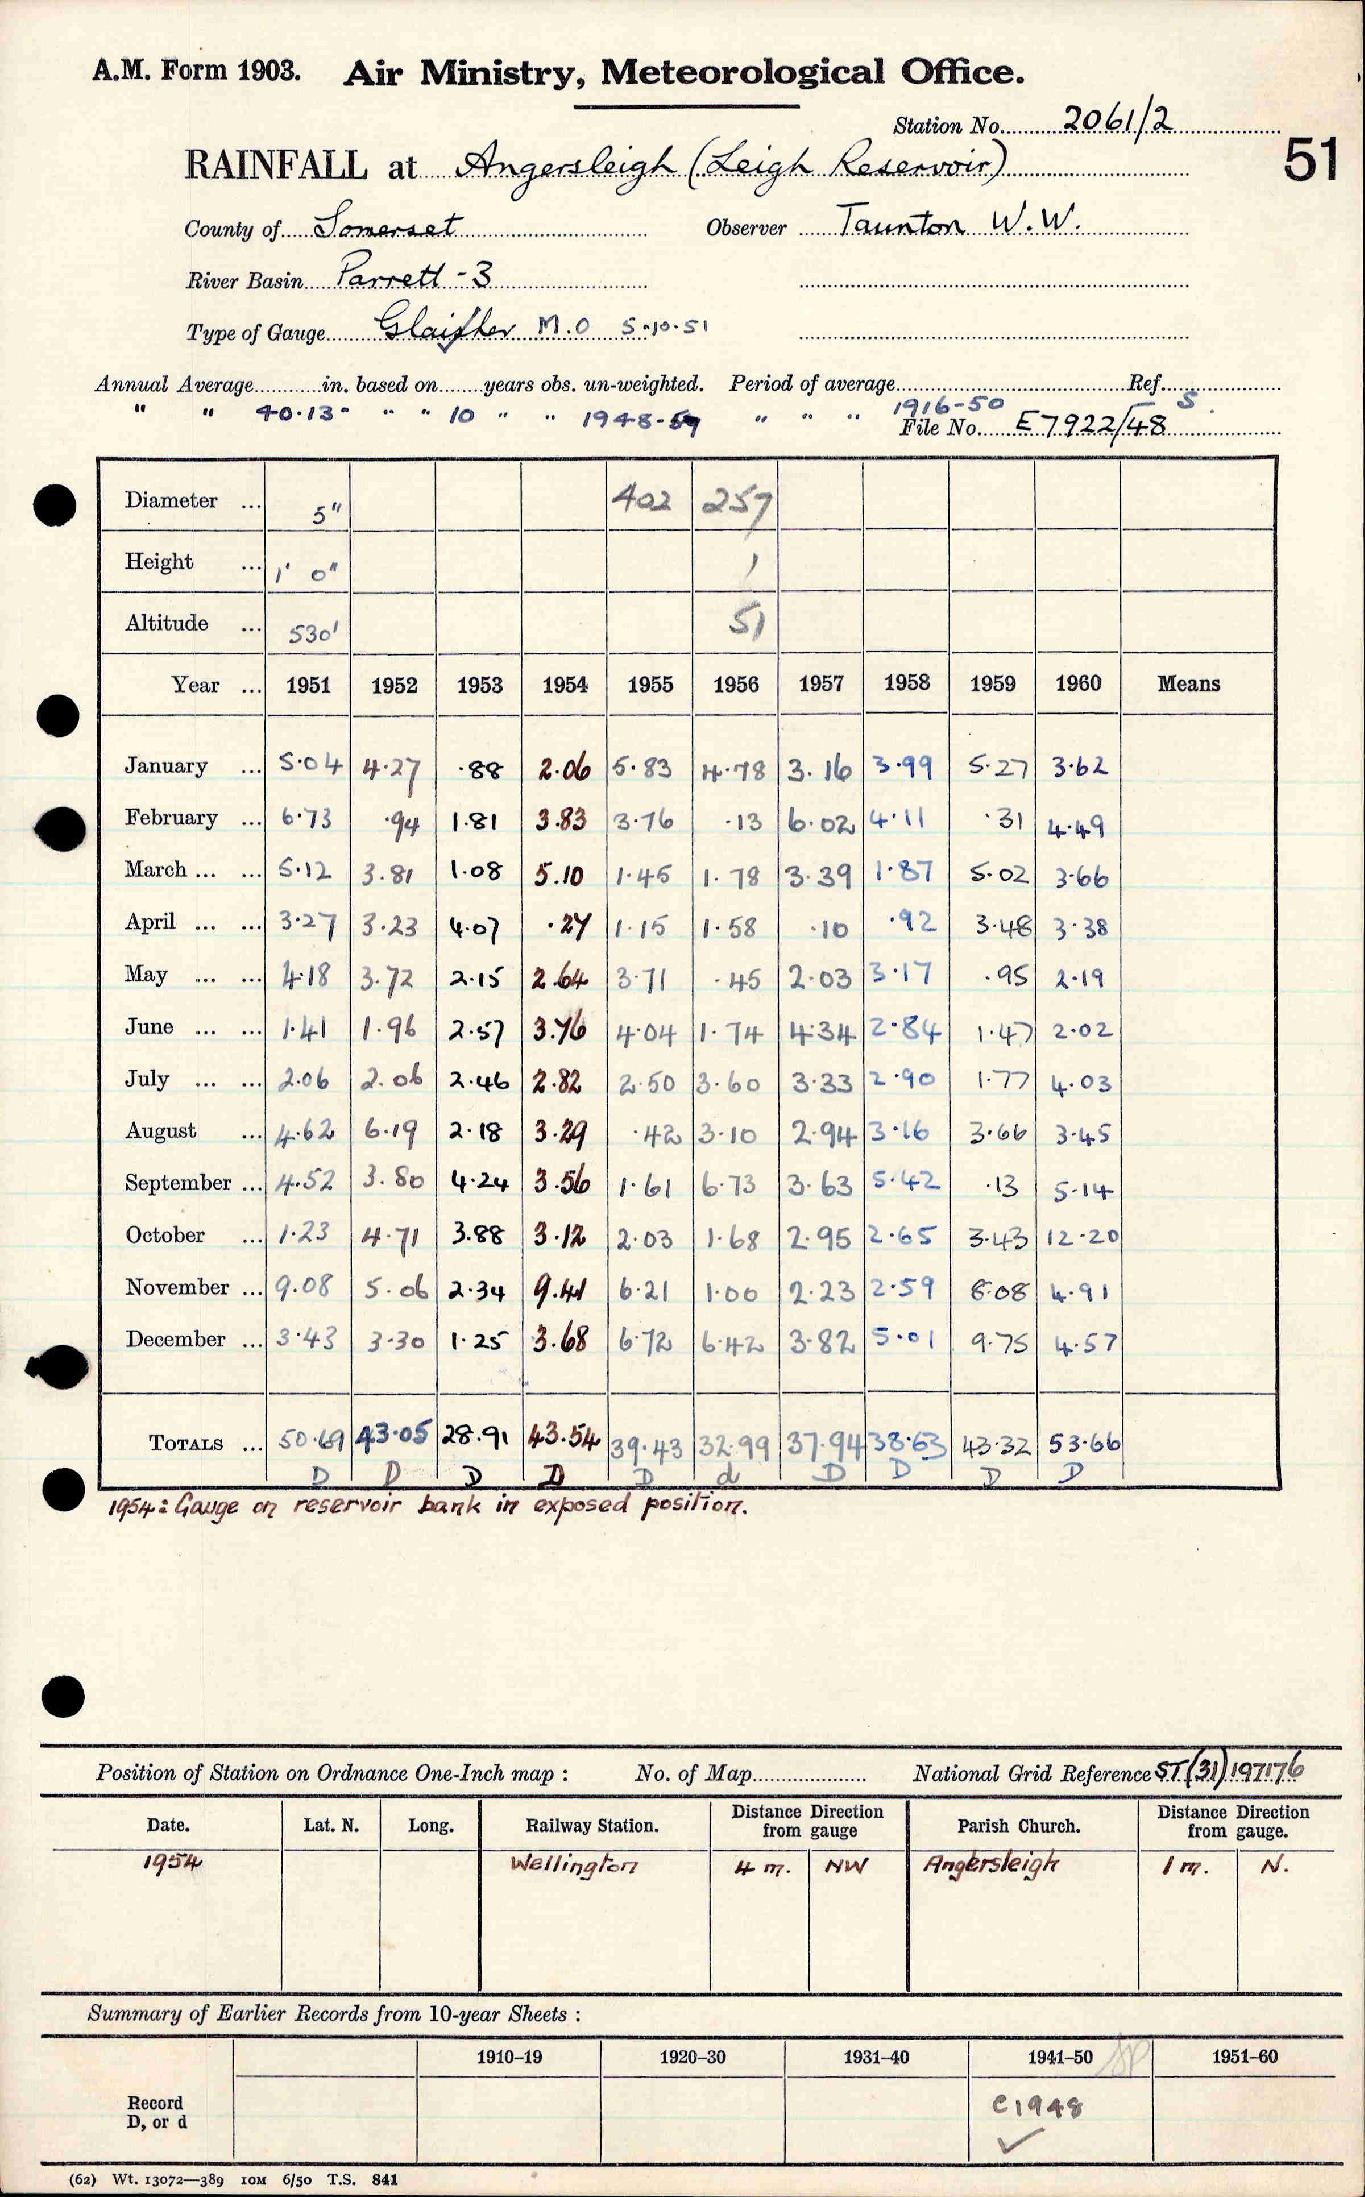 A.M. Form 1903. Air Ministry, Meteorological Office.
Station No. 2061/2
51
RAINFALL at Angersleigh (Leigh Reservoir)
County of Somerset Observer Taunton W.W.
River Basin Parrett - 3
Type of Gauge Glaisher M.O 5.10.51
Annual Average in. based on years obs. un-weighted. Period of average Ref.
" " 40.13 " " 10 " " 1948-59 " " " 1916-50 S.
File No. E7922/48
Diameter ... 5" 402 257
Height ... 1' 0" 1
Altitude ... 530' 51
Year ... 1951 1952 1953 1954 1955 1956 1957 1958 1959 1960 Means
January ... 5.04 4.27 .88 2.06 5.83 4.78 3.16 3.99 5.27 3.62
February ... 6.73 .94 1.81 3.83 3.76 .13 6.02 4.11 .31 4.49
March ... ... 5.12 3.81 1.08 5.10 1.45 1.78 3.39 1.87 5.02 3.66
April ... ... 3.27 3.23 4.07 .27 1.15 1.58 .10 .92 3.48 3.38
May ... ... 4.18 3.72 2.15 2.64 3.71 .45 2.03 3.17 .95 2.19
June ... ... 1.41 1.96 2.57 3.76 4.04 1.74 4.34 2.84 1.47 2.02
July ... ... 2.06 2.06 2.46 2.82 2.50 3.60 3.33 2.90 1.77 4.03
August ... 4.62 6.19 2.18 3.29 .42 3.10 2.94 3.16 3.66 3.45
September ... 4.52 3.80 4.24 3.56 1.61 6.73 3.63 5.42 .13 5.14
October ... 1.23 4.71 3.88 3.12 2.03 1.68 2.95 2.65 3.43 12.20
November ... 9.08 5.06 2.34 9.41 6.21 1.00 2.23 2.59 8.08 4.91
December ... 3.43 3.30 1.25 3.68 6.72 6.42 3.82 5.01 9.75 4.57
TOTALS ... 50.69 43.05 28.91 43.54 39.43 32.99 37.94 38.63 43.32 53.66
D D D D D d D D D D
1954: Gauge on reservoir bank in exposed position.
Position of Station on Ordnance One-Inch map : No. of Map National Grid Reference ST(31)197176
Date. Lat. N. Long. Railway Station. Distance Direction from gauge Parish Church. Distance Direction from gauge.
1954 Wellington 4 m. NW Angersleigh 1 m. N.
Summary of Earlier Records from 10-year Sheets :
1910-19 1920-30 1931-40 1941-50 1951-60
Record D, or d C1948 ✓
(62) Wt. 13072—389 10M 6/50 T.S. 841